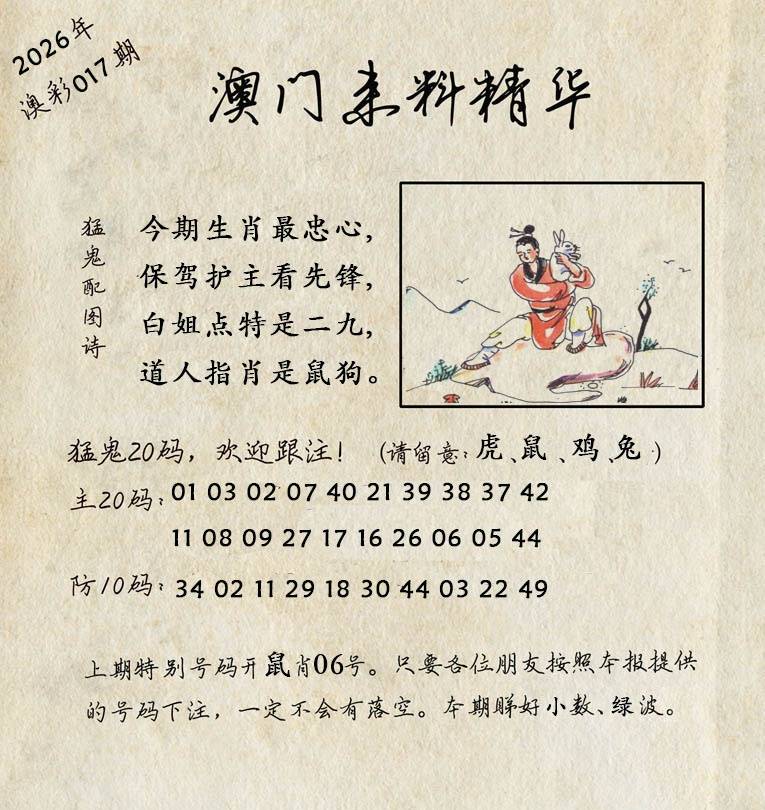 2026年
澳彩017期
澳门来料精华
猛鬼配图诗
今期生肖最忠心，
保驾护主看先锋，
白姐点特是二九，
道人指肖是鼠狗。
猛鬼20码，欢迎跟注！（请留意：虎、鼠、鸡、兔）
主20码：01 03 02 07 40 21 39 38 37 42
11 08 09 27 17 16 26 06 05 44
防10码：34 02 11 29 18 30 44 03 22 49
上期特别号码开鼠肖06号。只要各位朋友按照本报提供
的号码下注，一定不会有落空。本期睇好小数、绿波。